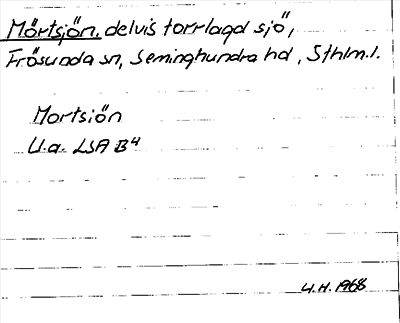 Mörtsjön, delvis torrlagd sjö,
Frösunda sn, Seminghundra hd, Sthlm.l.
Mortsiön
U.a. LSA B4
U.H. 1968